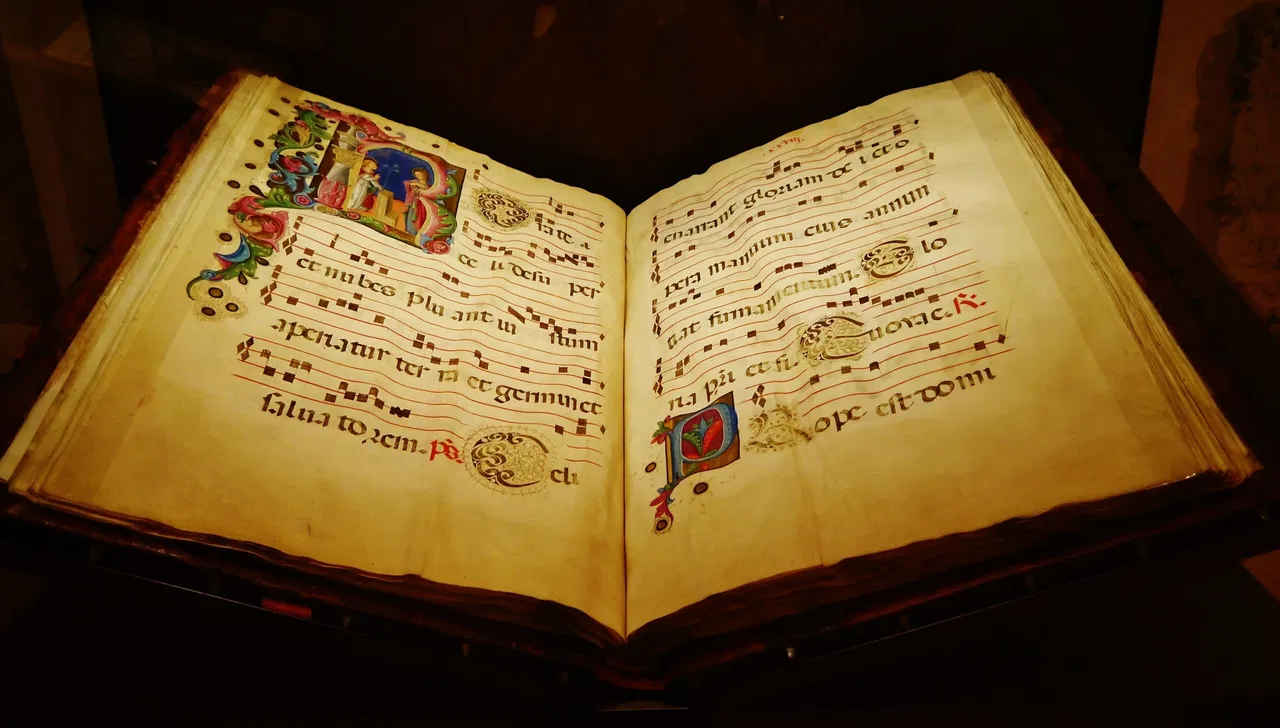 Rate
ce li desu per
et nubes plu ant iu stum
aperiatur ter ra et germinet
salua to rem. ps. Celi
enarrant gloriam de i et o
pera manuum eius annun
tiat firmamentum. Glo
ria pri et fi. Euovae. R.
Prope est domi